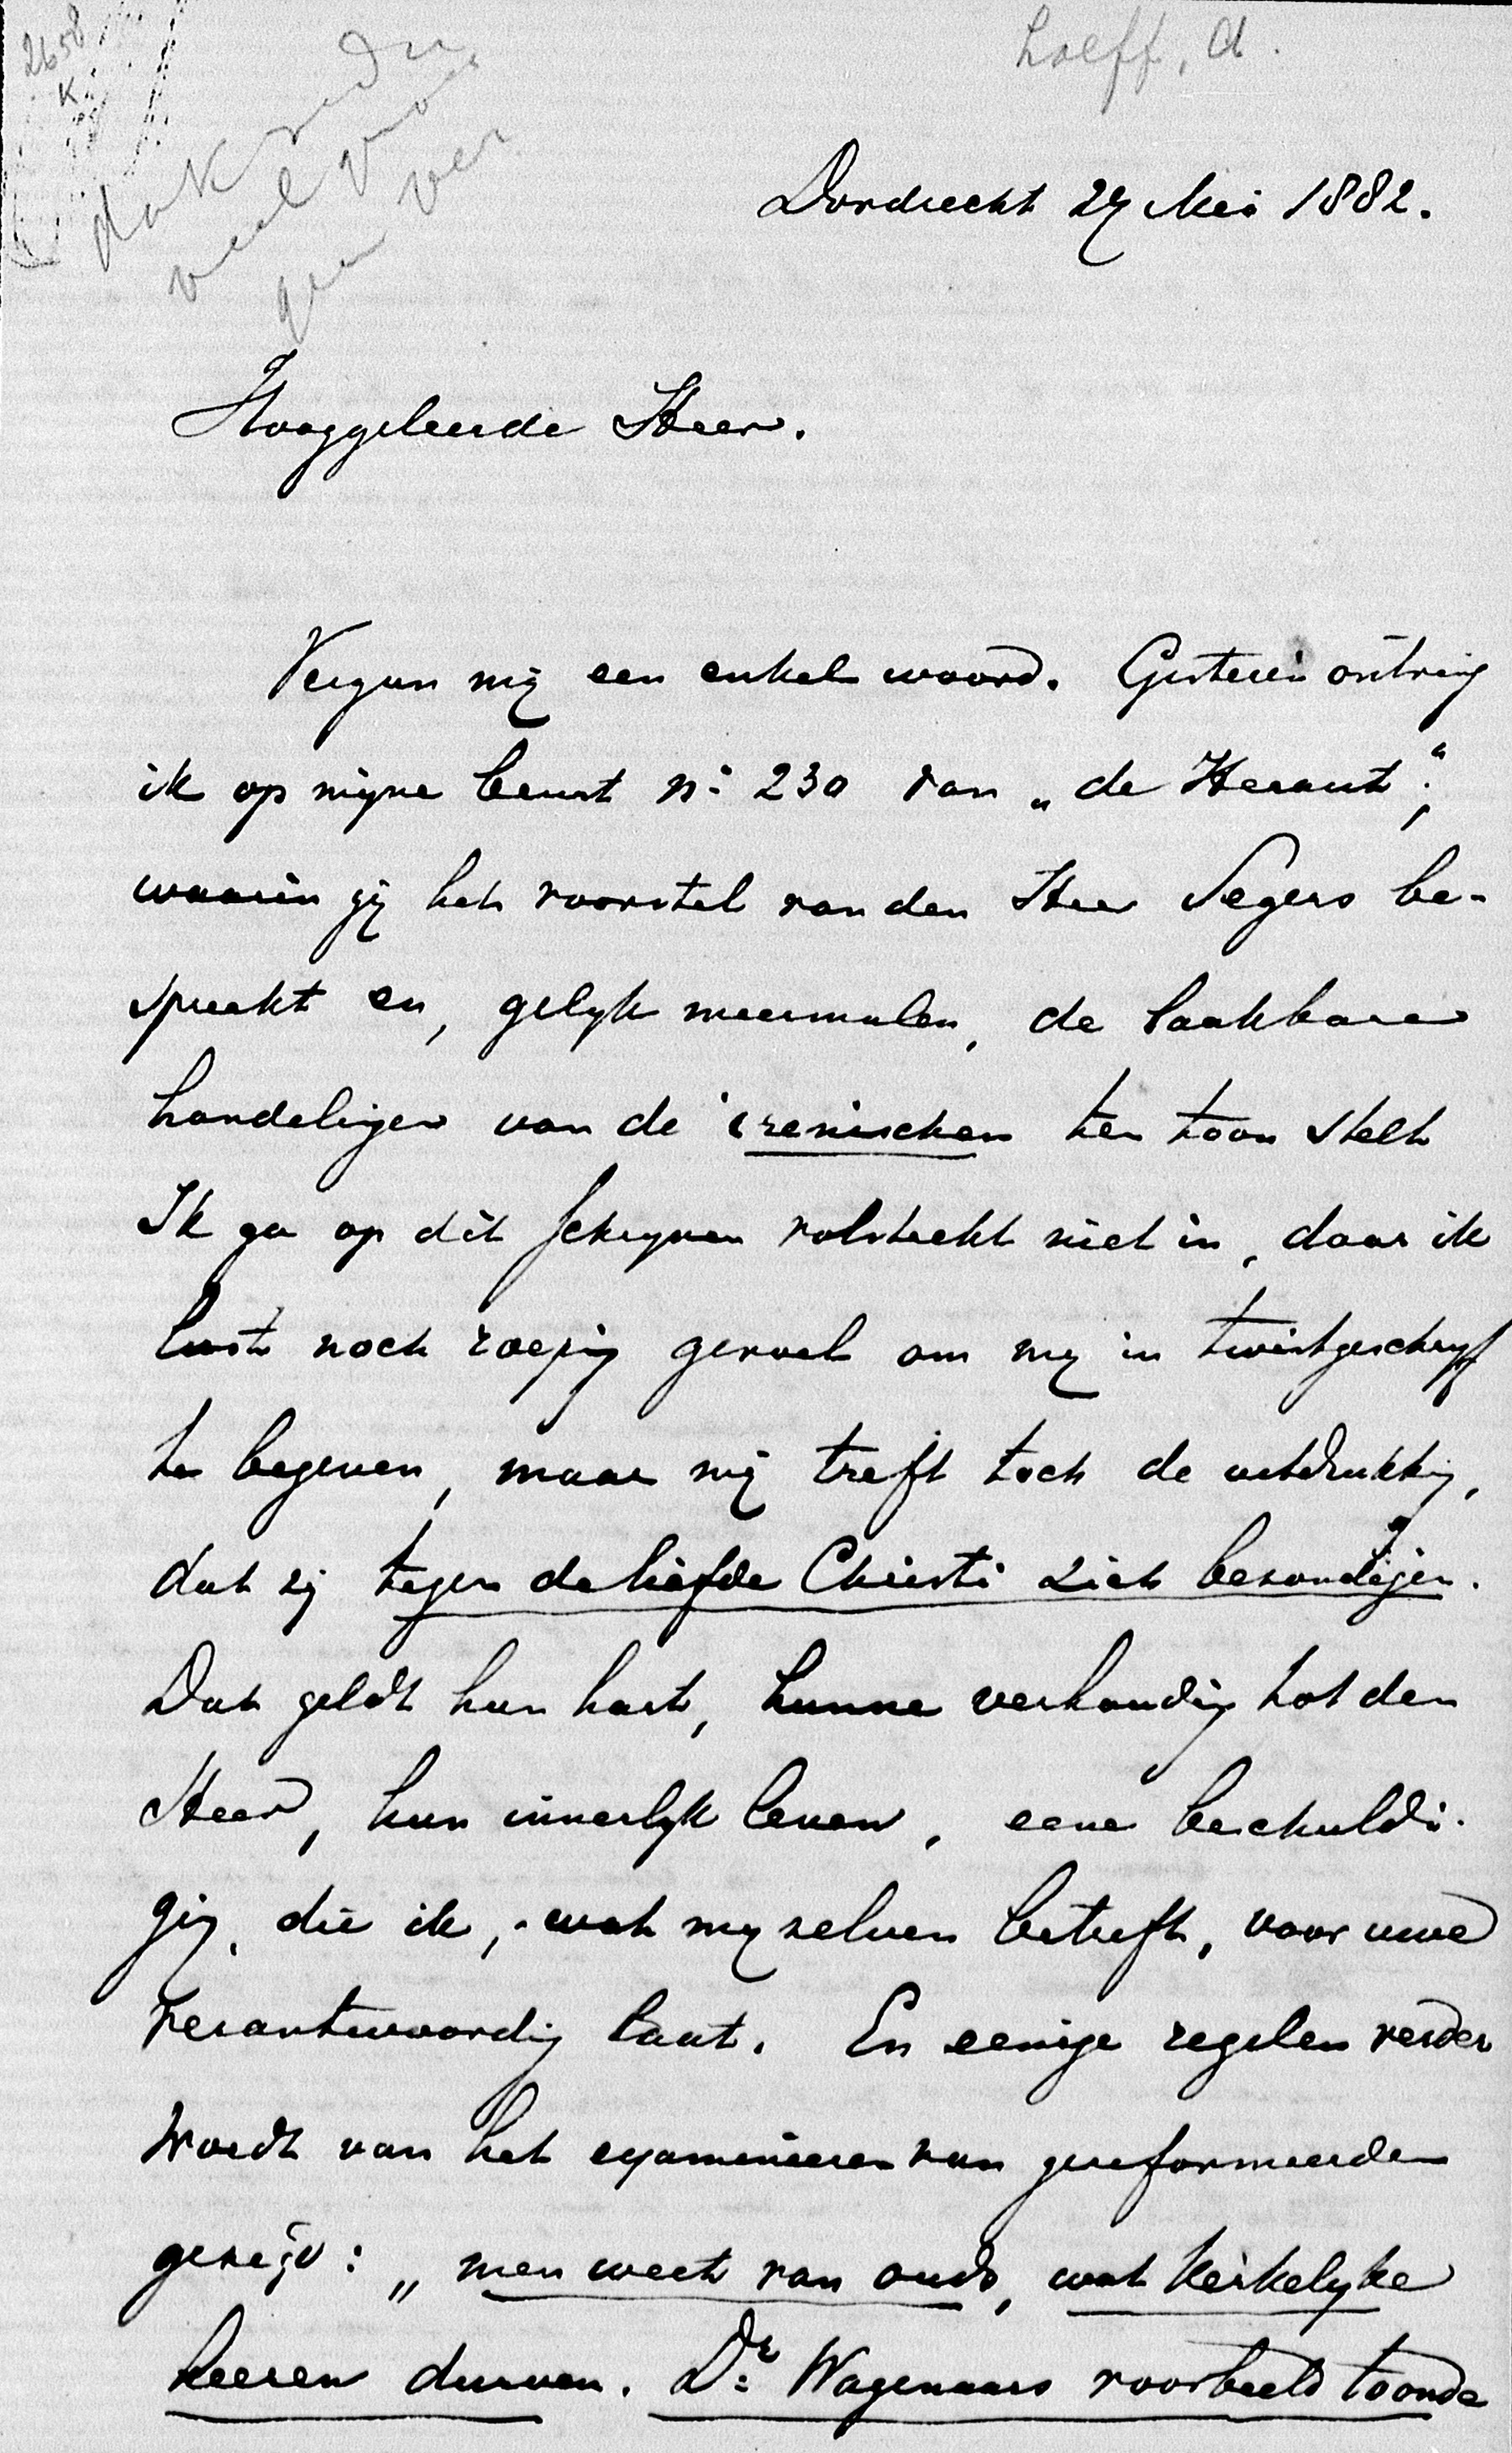 2658
K
Loeff, A.
dank
veel voor
Dordrecht 27 Mei 1882.
Hooggeleerde Heer.
Vergun mij een enkel woord. Gisteren ontving
ik op mijne beurt No 230 van „de Heraut",
waarin gij het voorstel van den Heer Segers be-
spreekt en, gelijk meermalen, de laakbare
handelingen van de irenischen ten toon stelt
Ik ga op dit schrijven volstrekt niet in, daar ik
lust noch roeping gevoel om mij in twistgeschrijf
te begeven, maar mij treft toch de uitdrukking,
dat zij tegen de liefde Christi zich bezondigen.
Dat geldt hun hart, hunne verhouding tot den
Heer, hun innerlijk leven, eene beschuldi-
ging, die ik, wat mijzelven betreft, voor uwe
verantwoording laat. En eenige regelen verder
wordt van het examineeren van gereformeerden
gezegd: „men weet van ouds, wat kerkelijke
heeren durven. Dr Wagenaars voorbeeld toonde